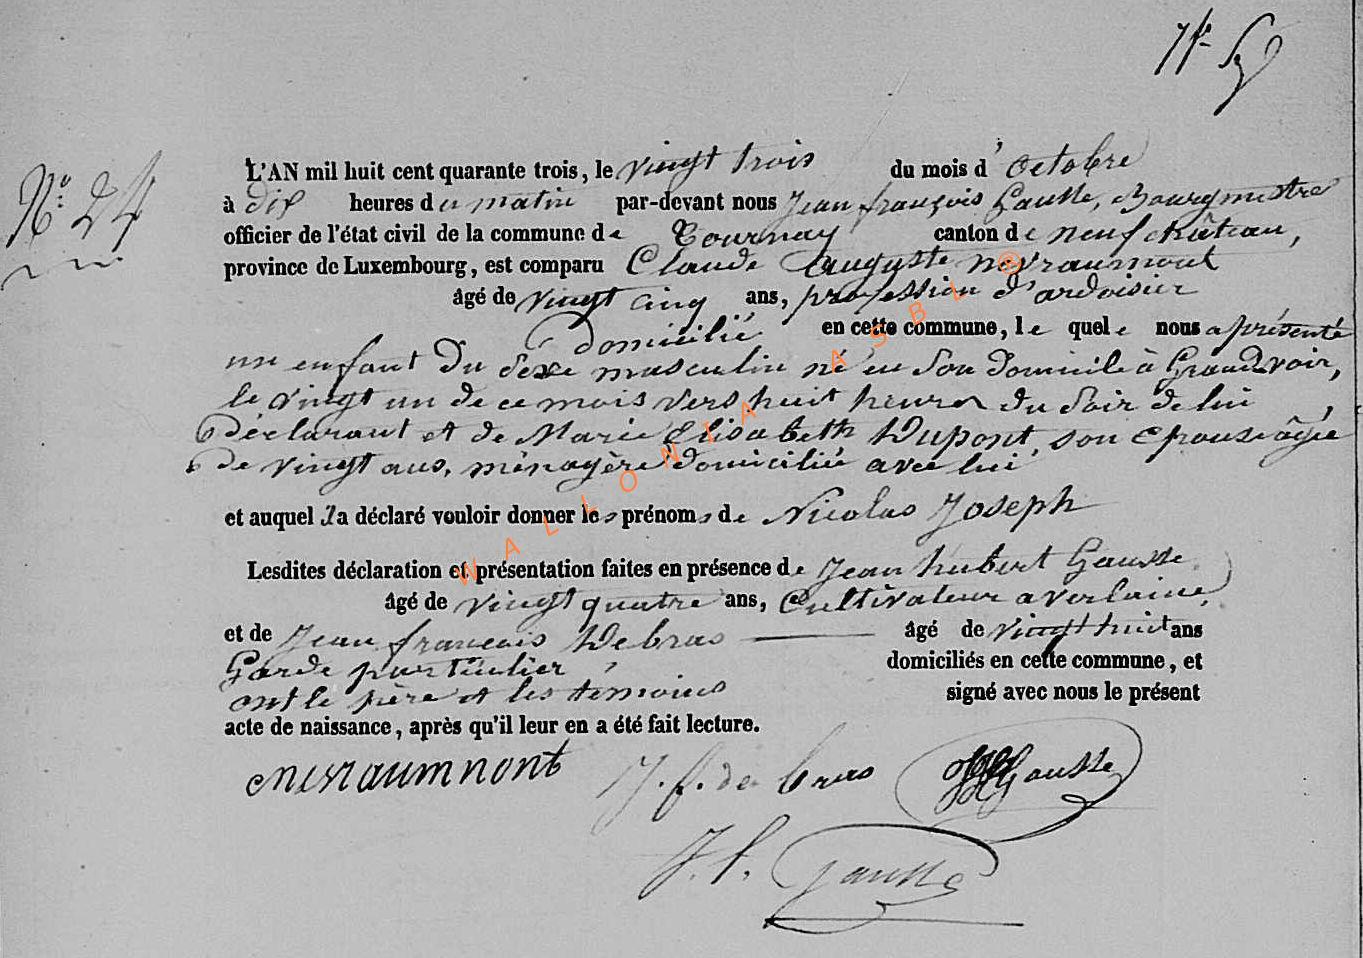 N.º 24
L'AN mil huit cent quarante trois, le vingt trois du mois d'octobre
à dix heures du matin par-devant nous Jean françois Gausse, Bourgmestre
officier de l'état civil de la commune de Tournay canton de neufchâteau,
province de Luxembourg, est comparu Claude Auguste nevraumont
âgé de vingt cinq ans, profession d'ardoisier
domicilié en cette commune, le quel nous a présenté
un enfant du sexe masculin né en son domicile à Grandvoir,
le vingt un de ce mois vers huit heures du soir de lui
Déclarant et de Marie Elisabeth Dupont, son épouse âgée
de vingt ans, ménagère domiciliée avec lui
et auquel il a déclaré vouloir donner les prénoms de Nicolas Joseph
Lesdites déclaration et présentation faites en présence de Jean hubert Gausse,
âgé de vingt quatre ans, Cultivateur a verlaine,
et de Jean françois Debras âgé de vingt huit ans
Garde particulier domiciliés en cette commune, et
ont le père et les témoins signé avec nous le présent
acte de naissance, après qu'il leur en a été fait lecture.
nevraumont J. f. de bras Gausse
J. f. Gausse
WALLONIA ASBL ®